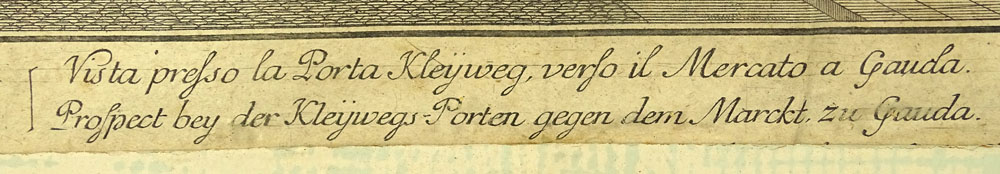 Vista preſso la Porta Kleÿweg, verſo il Mercato a Gauda.
Proſpect bey der Kleÿwegs-Porten gegen dem Marckt. zu Gauda.